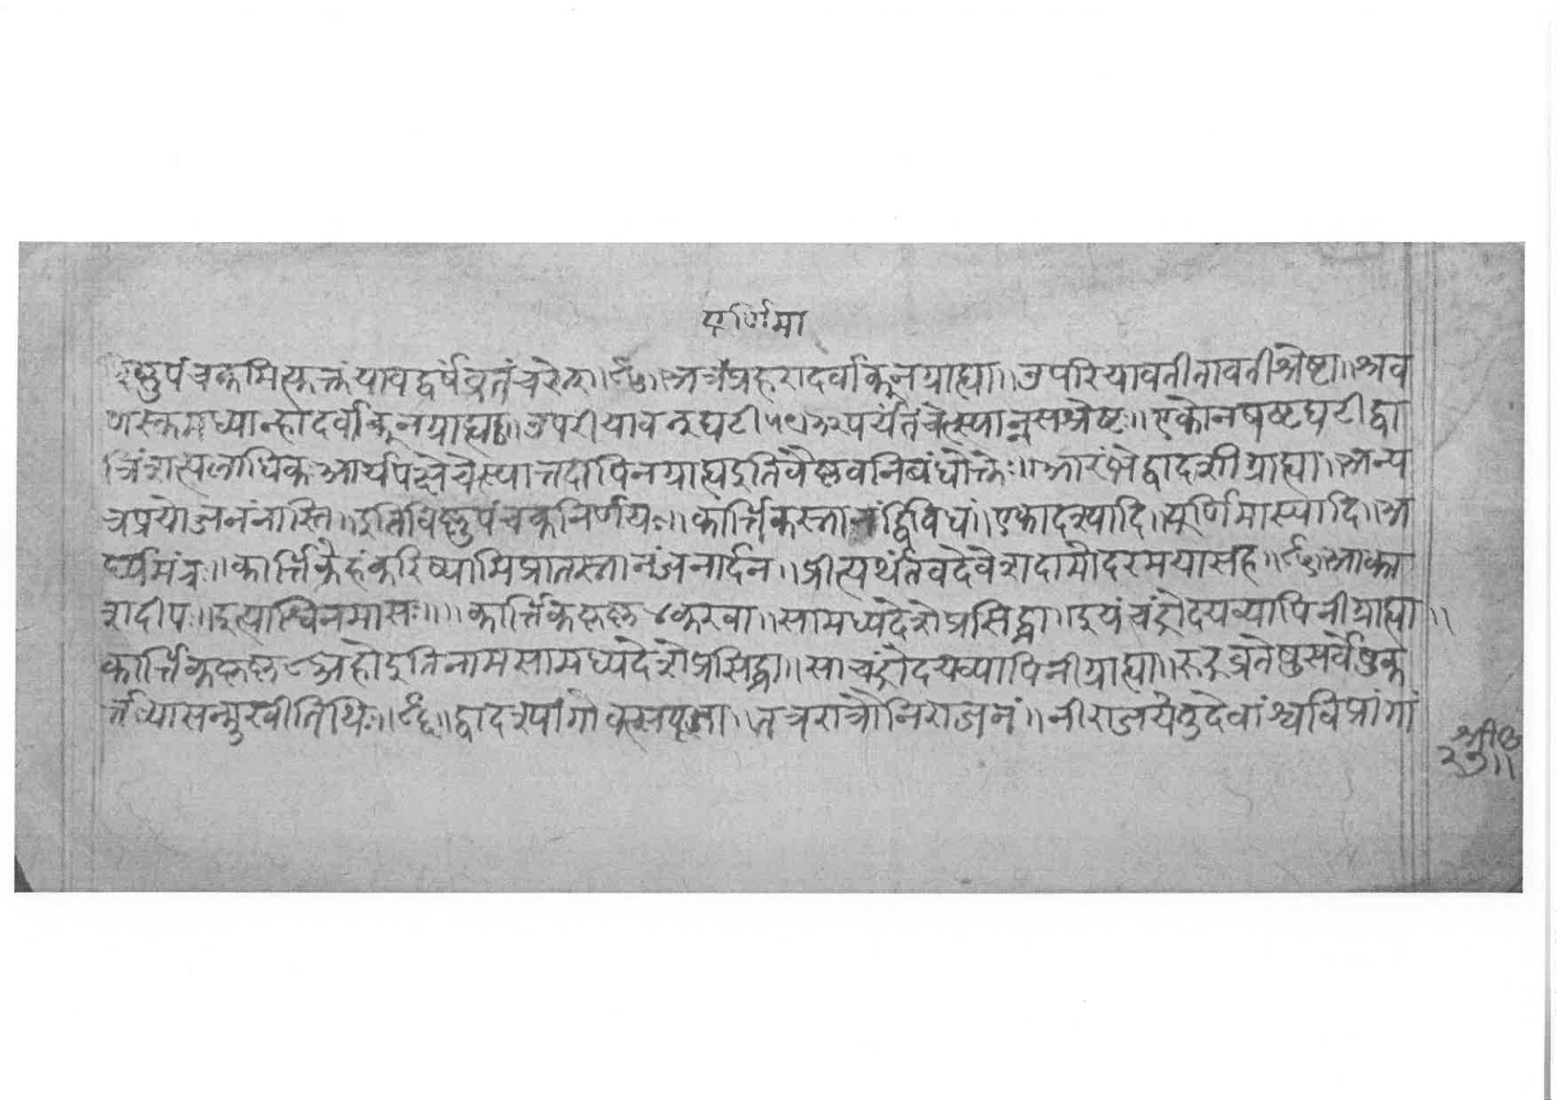 पूर्णिमा
विष्णुपंचकमित्युक्तं यावद्वर्षव्रतं चरेत्॥ अत्र प्रहरादर्वाक् न ग्राह्या॥ उपरि यावती तावती श्रेष्टा॥ श्रव
णस्तु मध्यान्हादर्वाक् न ग्राह्यः॥ उपरी यावत् घटी ५९।३२ पर्यंतं चेत्स्यान् स श्रेष्टः॥ एकोनषष्टघटी द्वा
त्रिंशत्पलाधिक चेत्स्यात्तदापि न ग्राह्य इति वैष्णवनिबंधोक्तेः॥ आरंभे द्वादशी ग्राह्या॥ अन्य
त्र प्रयोजनं नास्ति॥ इति विष्णुपंचकनिर्णयः॥ कार्त्तिकस्नानं द्विविधां॥ एकादश्यादि॥ पूर्णिमास्यादि॥ अ
र्घ्यमंत्रः॥ कार्त्तिकेहं करिष्यामि प्रातस्नानं जनार्दन॥ प्रीत्यर्थं तव देवेश दामोदर मया सह॥ आका
शदीपः॥ इत्याश्विनमासः॥॥ कार्त्तिककृष्ण ४ करवा॥ सा मध्यदेशे प्रसिद्धा॥ इयं चंद्रोदयव्यापिनी ग्राह्या॥
कार्त्तिककृष्ण ८ अहोइति नाम सा मध्यदेशे प्रसिद्धा॥ सा चंद्रोदयव्यापिनी ग्राह्या॥ रुद्रव्रतेषु सर्वेषु क
र्त्तव्या सन्मुखी तिथिः॥ द्वादश्यां गोवत्सपूजा॥ तत्र रात्रौ निराजनं॥ नीराजयेतु देवांश्च विप्रां गां